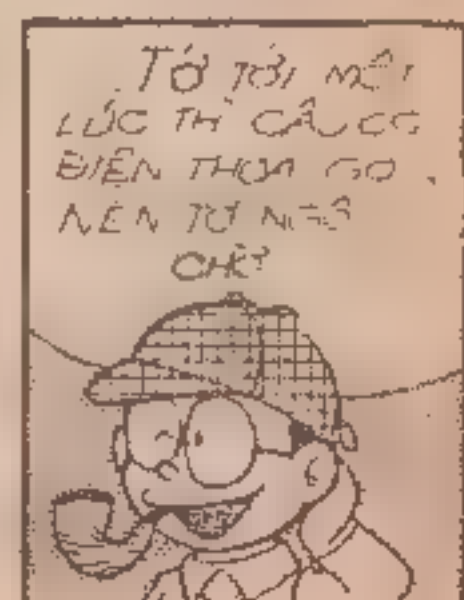 TỚ TỚI MỘT
LÚC THÌ CẬU CÓ
ĐIỆN THOẠI GỌI,
NÊN TỚ NGỒI
CHỜ